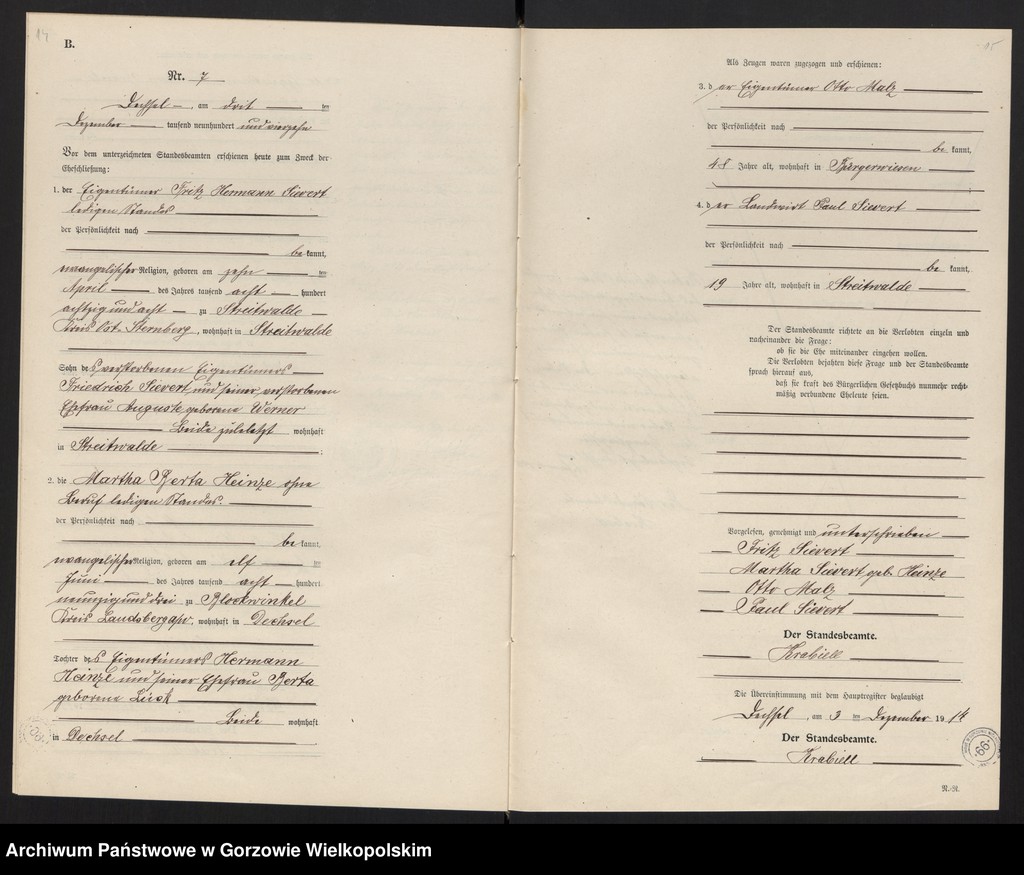 14
B.
Nr. 7
Dechsel, am drit ten
Dezember tausend neunhundert und vierzehn
Vor dem unterzeichneten Standesbeamten erschienen heute zum Zweck der
Eheschließung:
1. der Eigentümer Fritz Hermann Sievert
ledigen Standes
der Persönlichkeit nach
be kannt,
evangelischer Religion, geboren am zehn ten
April des Jahres tausend acht hundert
achtzig und acht zu Streitwalde
Kreis Ost-Sternberg, wohnhaft in Streitwalde
Sohn des verstorbenen Eigentümers
Friedrich Sievert und seiner verstorbenen
Ehefrau Auguste geborene Werner
Beide zuletzt wohnhaft
in Streitwalde ;
2. die Martha Berta Heinze ohne
Beruf ledigen Standes.
der Persönlichkeit nach
be kannt,
evangelischer Religion, geboren am elf ten
Juni des Jahres tausend acht hundert
neunzig und drei zu Blockwinkel
Kreis Landsberg a/W. wohnhaft in Dechsel
Tochter des Eigentümers Hermann
Heinze und seiner Ehefrau Berta
geborene
Beide wohnhaft
in Dechsel
15
Als Zeugen waren zugezogen und erschienen:
3. der Eigentümer Otto Malz
der Persönlichkeit nach
be kannt,
48 Jahre alt, wohnhaft in Bürgerwiesen
4. der Landwirt Paul Sievert
der Persönlichkeit nach
be kannt,
19 Jahre alt, wohnhaft in Streitwalde
Der Standesbeamte richtete an die Verlobten einzeln und
nacheinander die Frage:
ob sie die Ehe miteinander eingehen wollen.
Die Verlobten bejahten diese Frage und der Standesbeamte
sprach hierauf aus,
daß sie kraft des Bürgerlichen Gesetzbuchs nunmehr recht-
mäßig verbundene Eheleute seien.
Vorgelesen, genehmigt und unterschrieben
Fritz Sievert
Martha Sievert geb. Heinze
Otto Malz
Paul Sievert
Der Standesbeamte.
Krabiell
Die Übereinstimmung mit dem Hauptregister beglaubigt
Dechsel, am 3 ten Dezember 19 14
Der Standesbeamte.
Krabiell
66
N.-R.
Archiwum Państwowe w Gorzowie Wielkopolskim